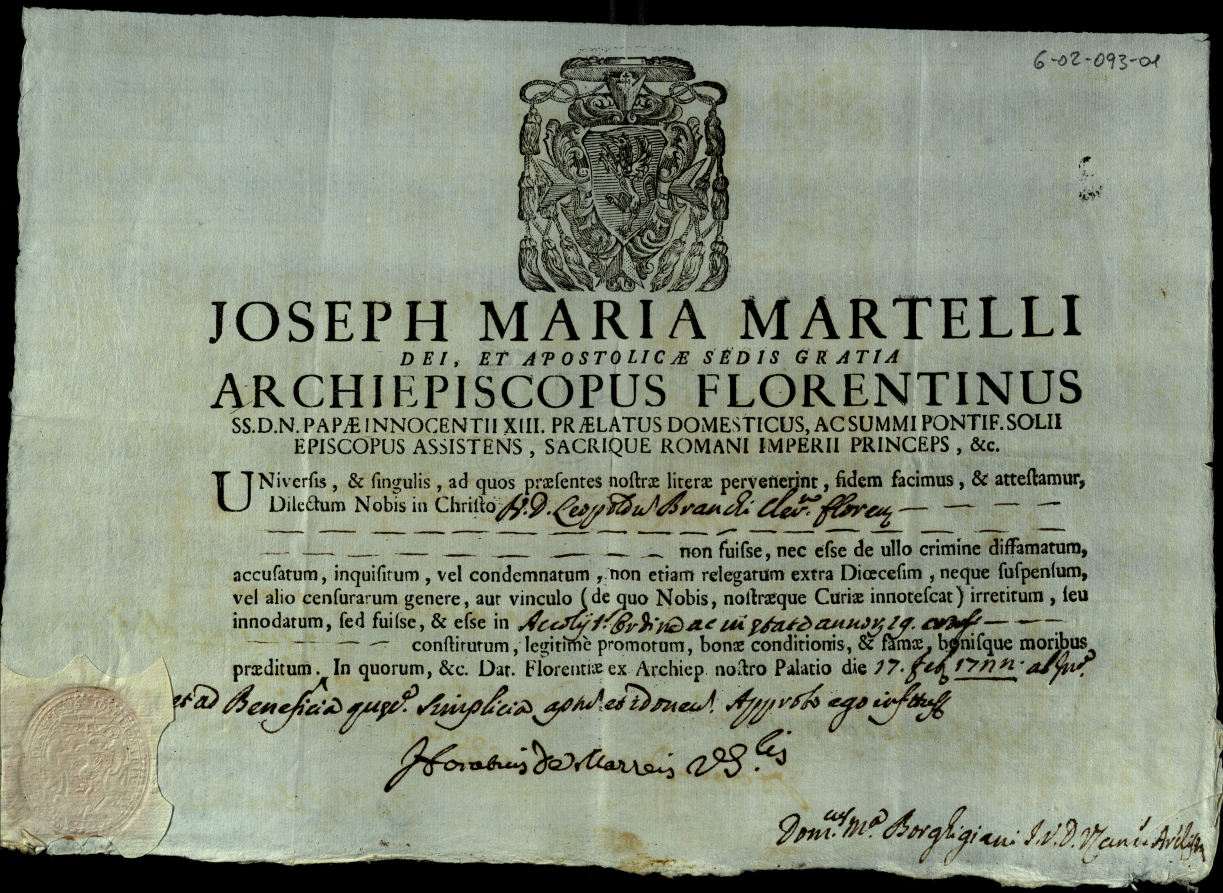 6-02-093-01
JOSEPH MARIA MARTELLI
DEI, ET APOSTOLICÆ SEDIS GRATIA
ARCHIEPISCOPUS FLORENTINUS
SS.D.N. PAPÆ INNOCENTII XIII. PRÆLATUS DOMESTICUS, AC SUMMI PONTIF. SOLII
EPISCOPUS ASSISTENS, SACRIQUE ROMANI IMPERII PRINCEPS, &c.
UNiversis, & singulis, ad quos præsentes nostræ literæ pervenerint, fidem facimus, & attestamur,
Dilectum Nobis in Christo N. D. Leopoldu Branchi Cler. floren
non fuisse, nec esse de ullo crimine diffamatum,
accusatum, inquisitum, vel condemnatum, non etiam relegatum extra Diœcesim, neque suspensum,
vel alio censurarum genere, aut vinculo (de quo Nobis, nostræque Curiæ innotescat) irretitum, seu
innodatum, sed fuisse, & esse in ac in annor. 19.
constitutum, legitimè promotum, bonæ conditionis, & famæ, bonisque moribus
præditum. In quorum, &c. Dat. Florentiæ ex Archiep. nostro Palatio die 17. feb. ab
et ad Beneficia Simplicia et idoneu. Approb. ego
Horatius de Mazzeis
Dom. Ma. Borghigiani J. V. D.